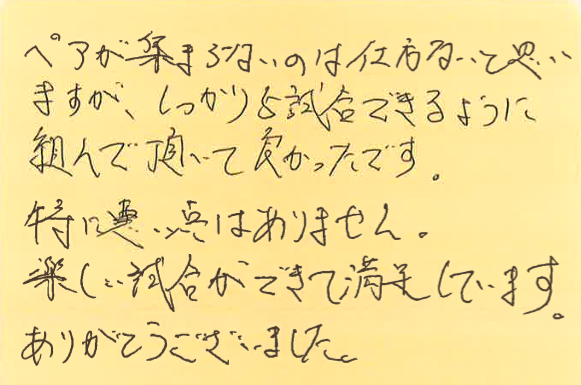 ペアが集まらないのは仕方ないと思い
ますが、しっかりと試合できるように
組んで頂いて良かったです。
特に悪い点はありません。
楽しい試合ができて満足しています。
ありがとうございました。